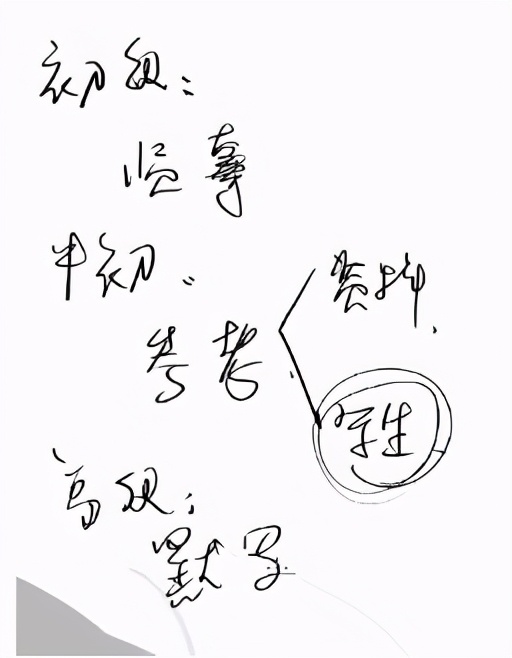 初级：
临摹
中初：
参考
写生
高级：
默写